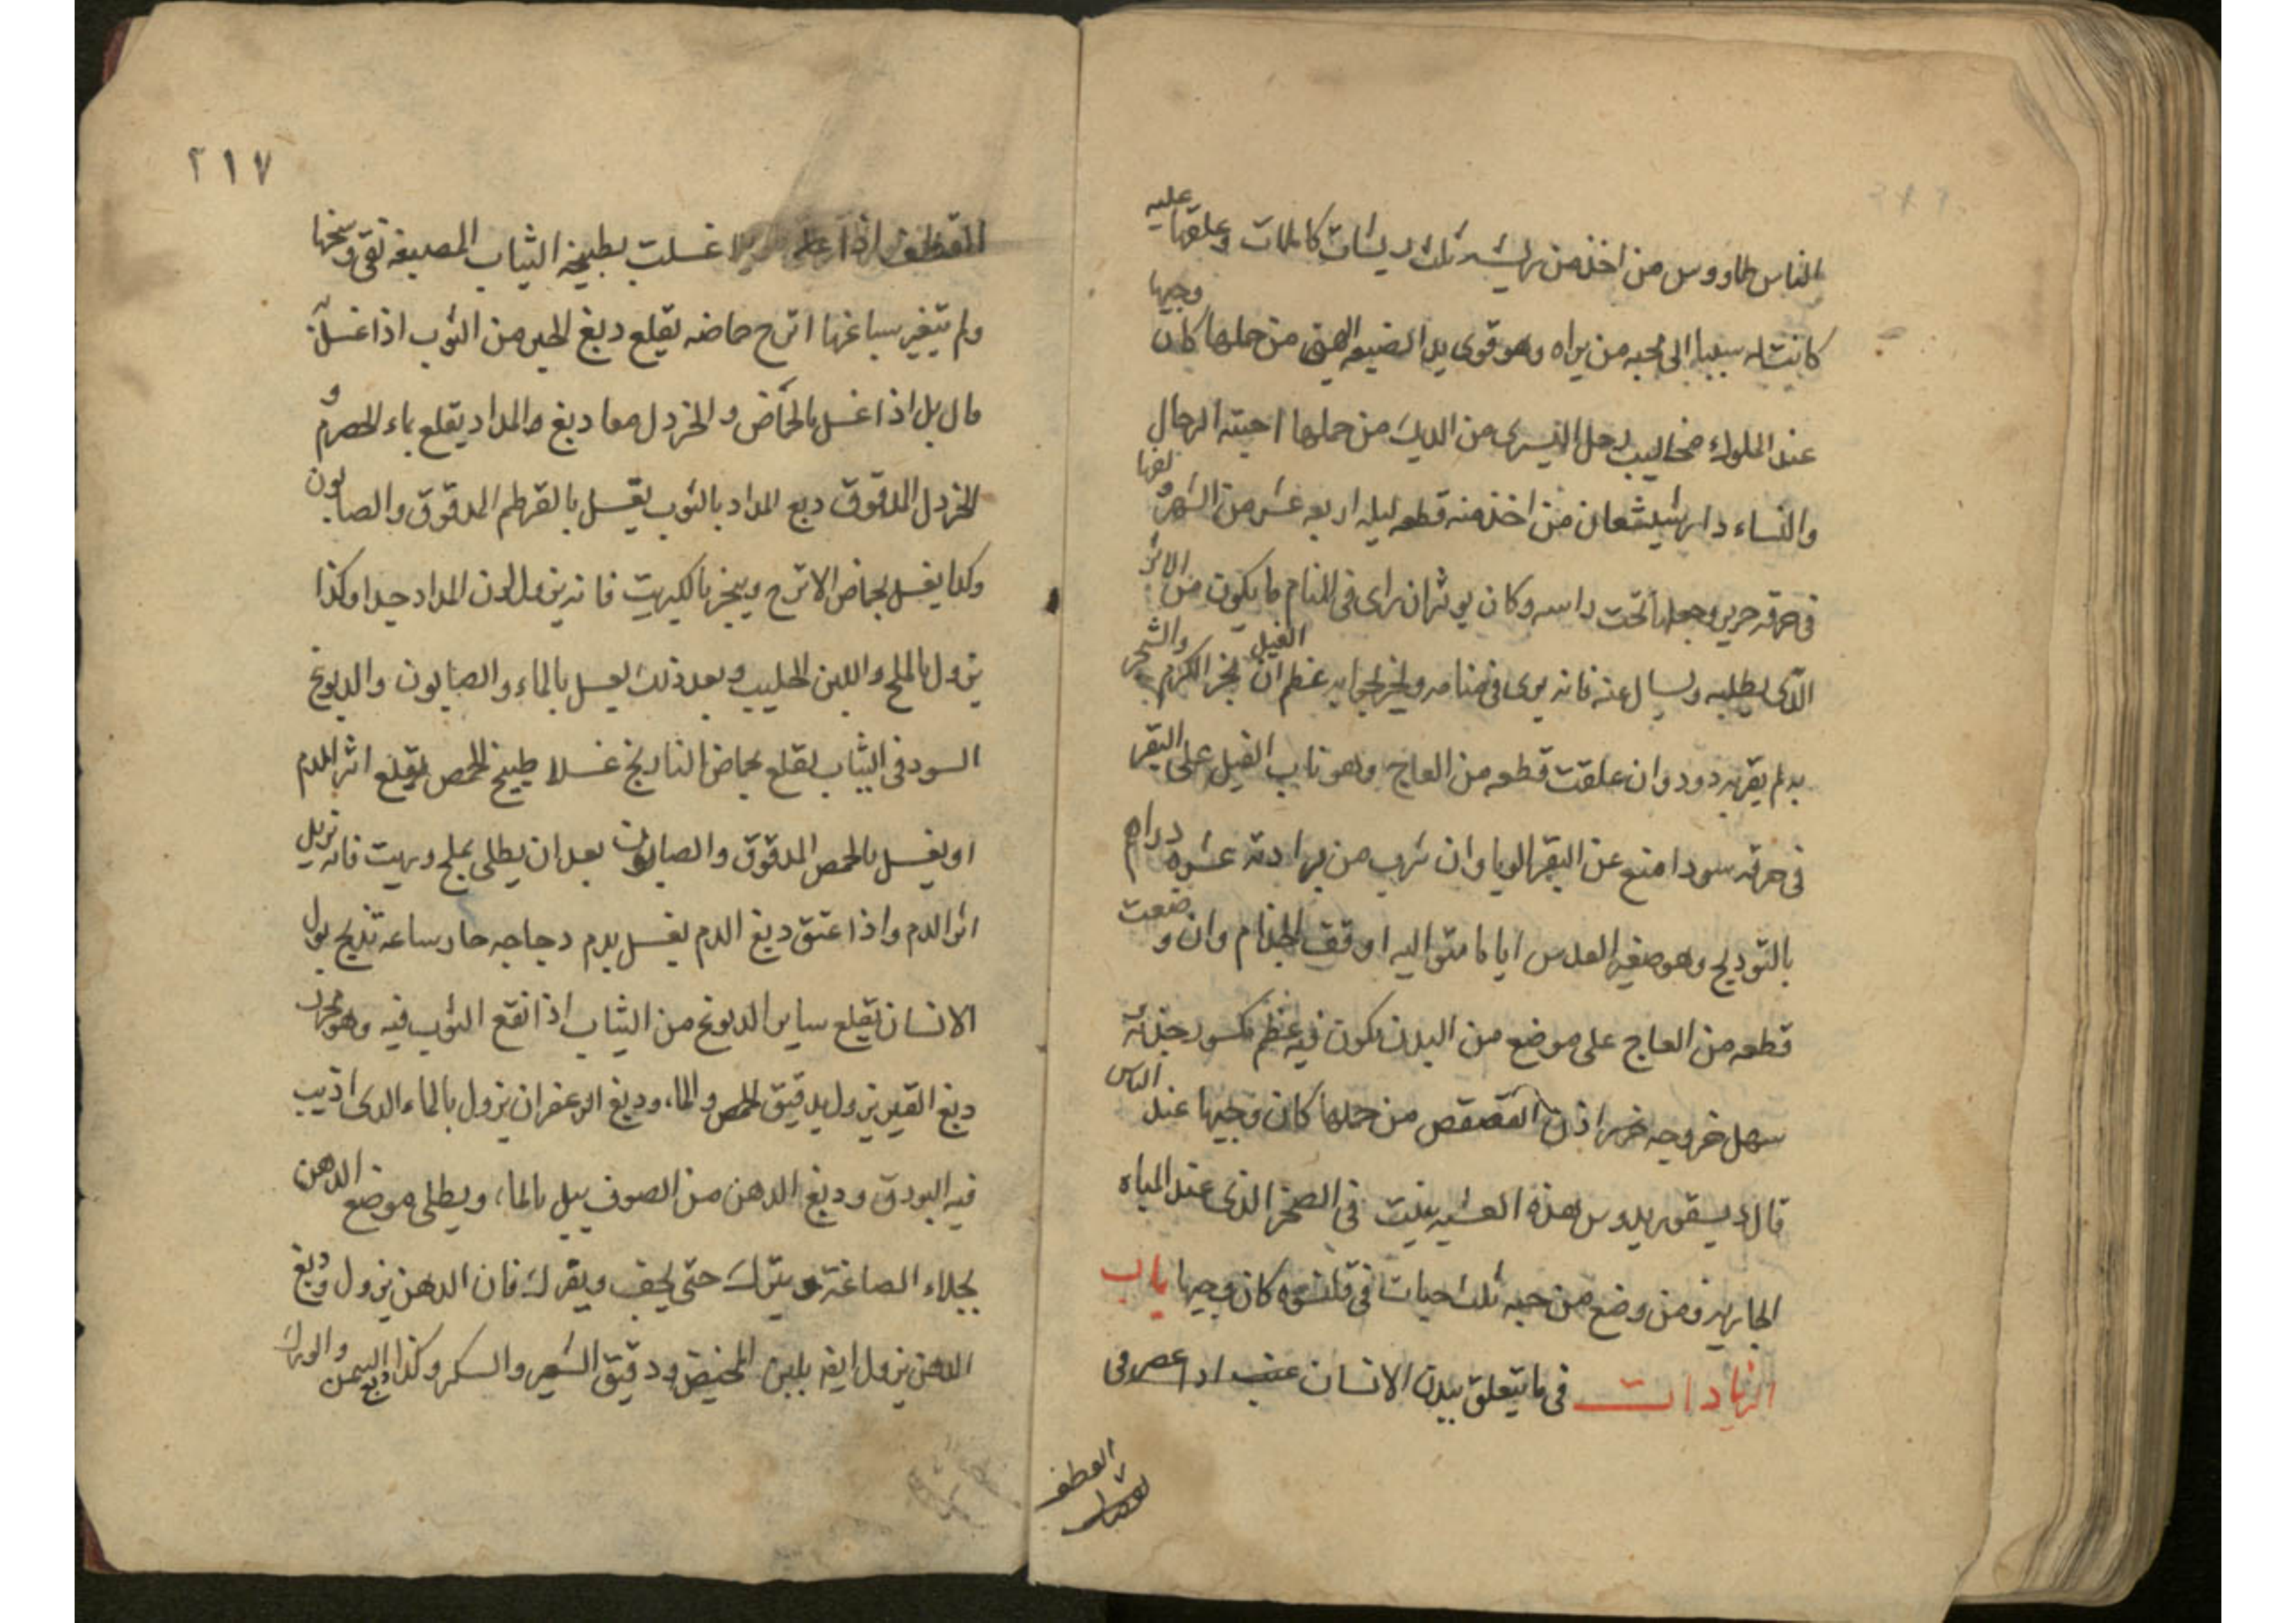 الناس طاووس من اخذ من ريشه ثلث ريشات كاملات وعلقها عليه
كانت له سببا الى محبه من يراه وهو قوى يد الضبعه اليمنى من حملها كان وجيها
عند الملوك مخاليب رجل اليسرى من الديك من حملها احبته الرجال
والنساء دار شيشعان من اخذ منه قطعه ليله اربعه عشر من الشهر ولفها
فى خرقه حرير وجعلها تحت راسه وكان يوثران راى فى المنام ما يكون من الاثر
الذى يطلبه ويسال عنه فانه يرى فى منامه عظم الفيل ان بخر الكرم والشجر
به لم يقربه دود وان علقت قطعه من العاج وهو ناب الفيل على البقر
فى خرقه سودا منع عن البقر الوبا وان شرب من برادته عشره دراهم
وهو صغير العدس اياما متواليه اوقف الجذام وان وضعت
قطعه من العاج على موضع من البدن يكون فيه عظم مكسور جذبته
سهل خروجه اذن من حملها كان وجيها عند الناس
قال ديسقوريدوس هذه العشبه ينبت فى الصخر الذى عند المياه
الجاريه ومن وضع من حبه ثلث حبات فى قلنسوه كان وجيها باب
الزيادات فى ما يتعلق ببدن الانسان عنب
٢١٧
اذا غسلت بطبيخه الثياب المصبغه نقى وسخها
ولم يتغير سباغها اترج حماضه يقلع دبغ الحبر من الثوب اذا غسل به
قال بل اذا غسل بالحماض والخردل معا دبغ المداد يقلع بماء الحصرم و
الخردل المدقوق دبع المداد بالثوب يغسل بالقرطم المدقوق والصابون
وكذا يغسل بحماض الاترج ويبخر بالكبريت فانه يزول لون المداد جدا وكذا
يزول بالملح واللبن الحليب وبعد ذلك يغسل بالماء والصابون والدبوغ
السود فى الثياب يقلع بحماض النارنج غسلا طبيخ الحمص يقلع اثر الدم
او يغسل بالحمص المدقوق والصابون بعد ان يطلى بملح وزيت فانه يزيل
اثر الدم واذا عتق دبغ الدم يغسل بدم دجاجه حار ساعه تذبح بول
الانسان يقلع ساير الدبوغ من الثياب اذا نقع الثوب فيه وهو مجرب
دبغ القير يزول بدقيق الحمص والماء ودبغ الزعفران يزول بالماء الذى اذيب
فيه البورق ودبغ الدهن من الصوف يبل بالماء ويطلى موضع الدهن
بجلاء الصاغة ويترك حتى يجف ويفرك فان الدهن يزول ودبغ
الدهن يزول ايضا بلبن المخيض ودقيق الشعير والسكر وكذا دبغ السمن والورك